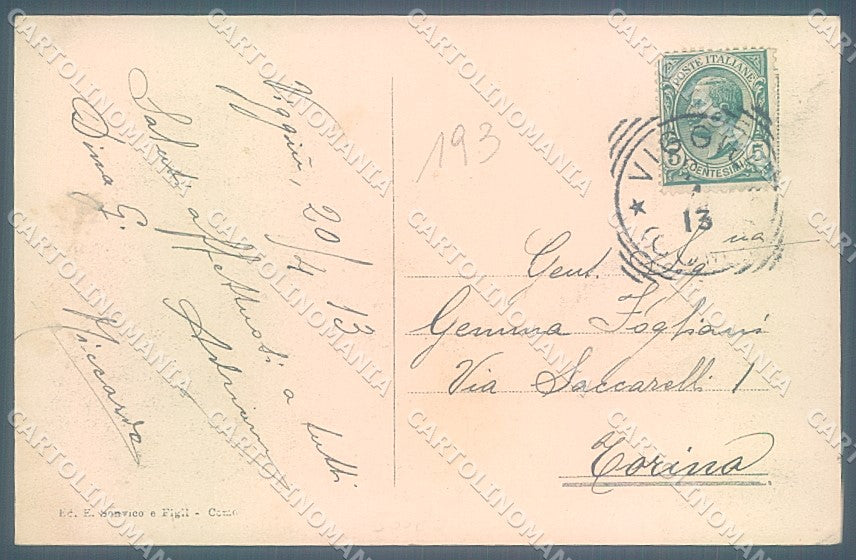 Viggiù, 20/4 13
Saluti affettuosi a tutti
Dina G. Adriana
Riccardo
193
POSTE ITALIANE
5 CENTESIMI 5
VIGGIÙ
13
Gent. Sig.na
Gemma Fogliani
Via Saccarelli 1
Torino
Ed. E. Bonvico e Figli - Como
CARTOLINOMANIA